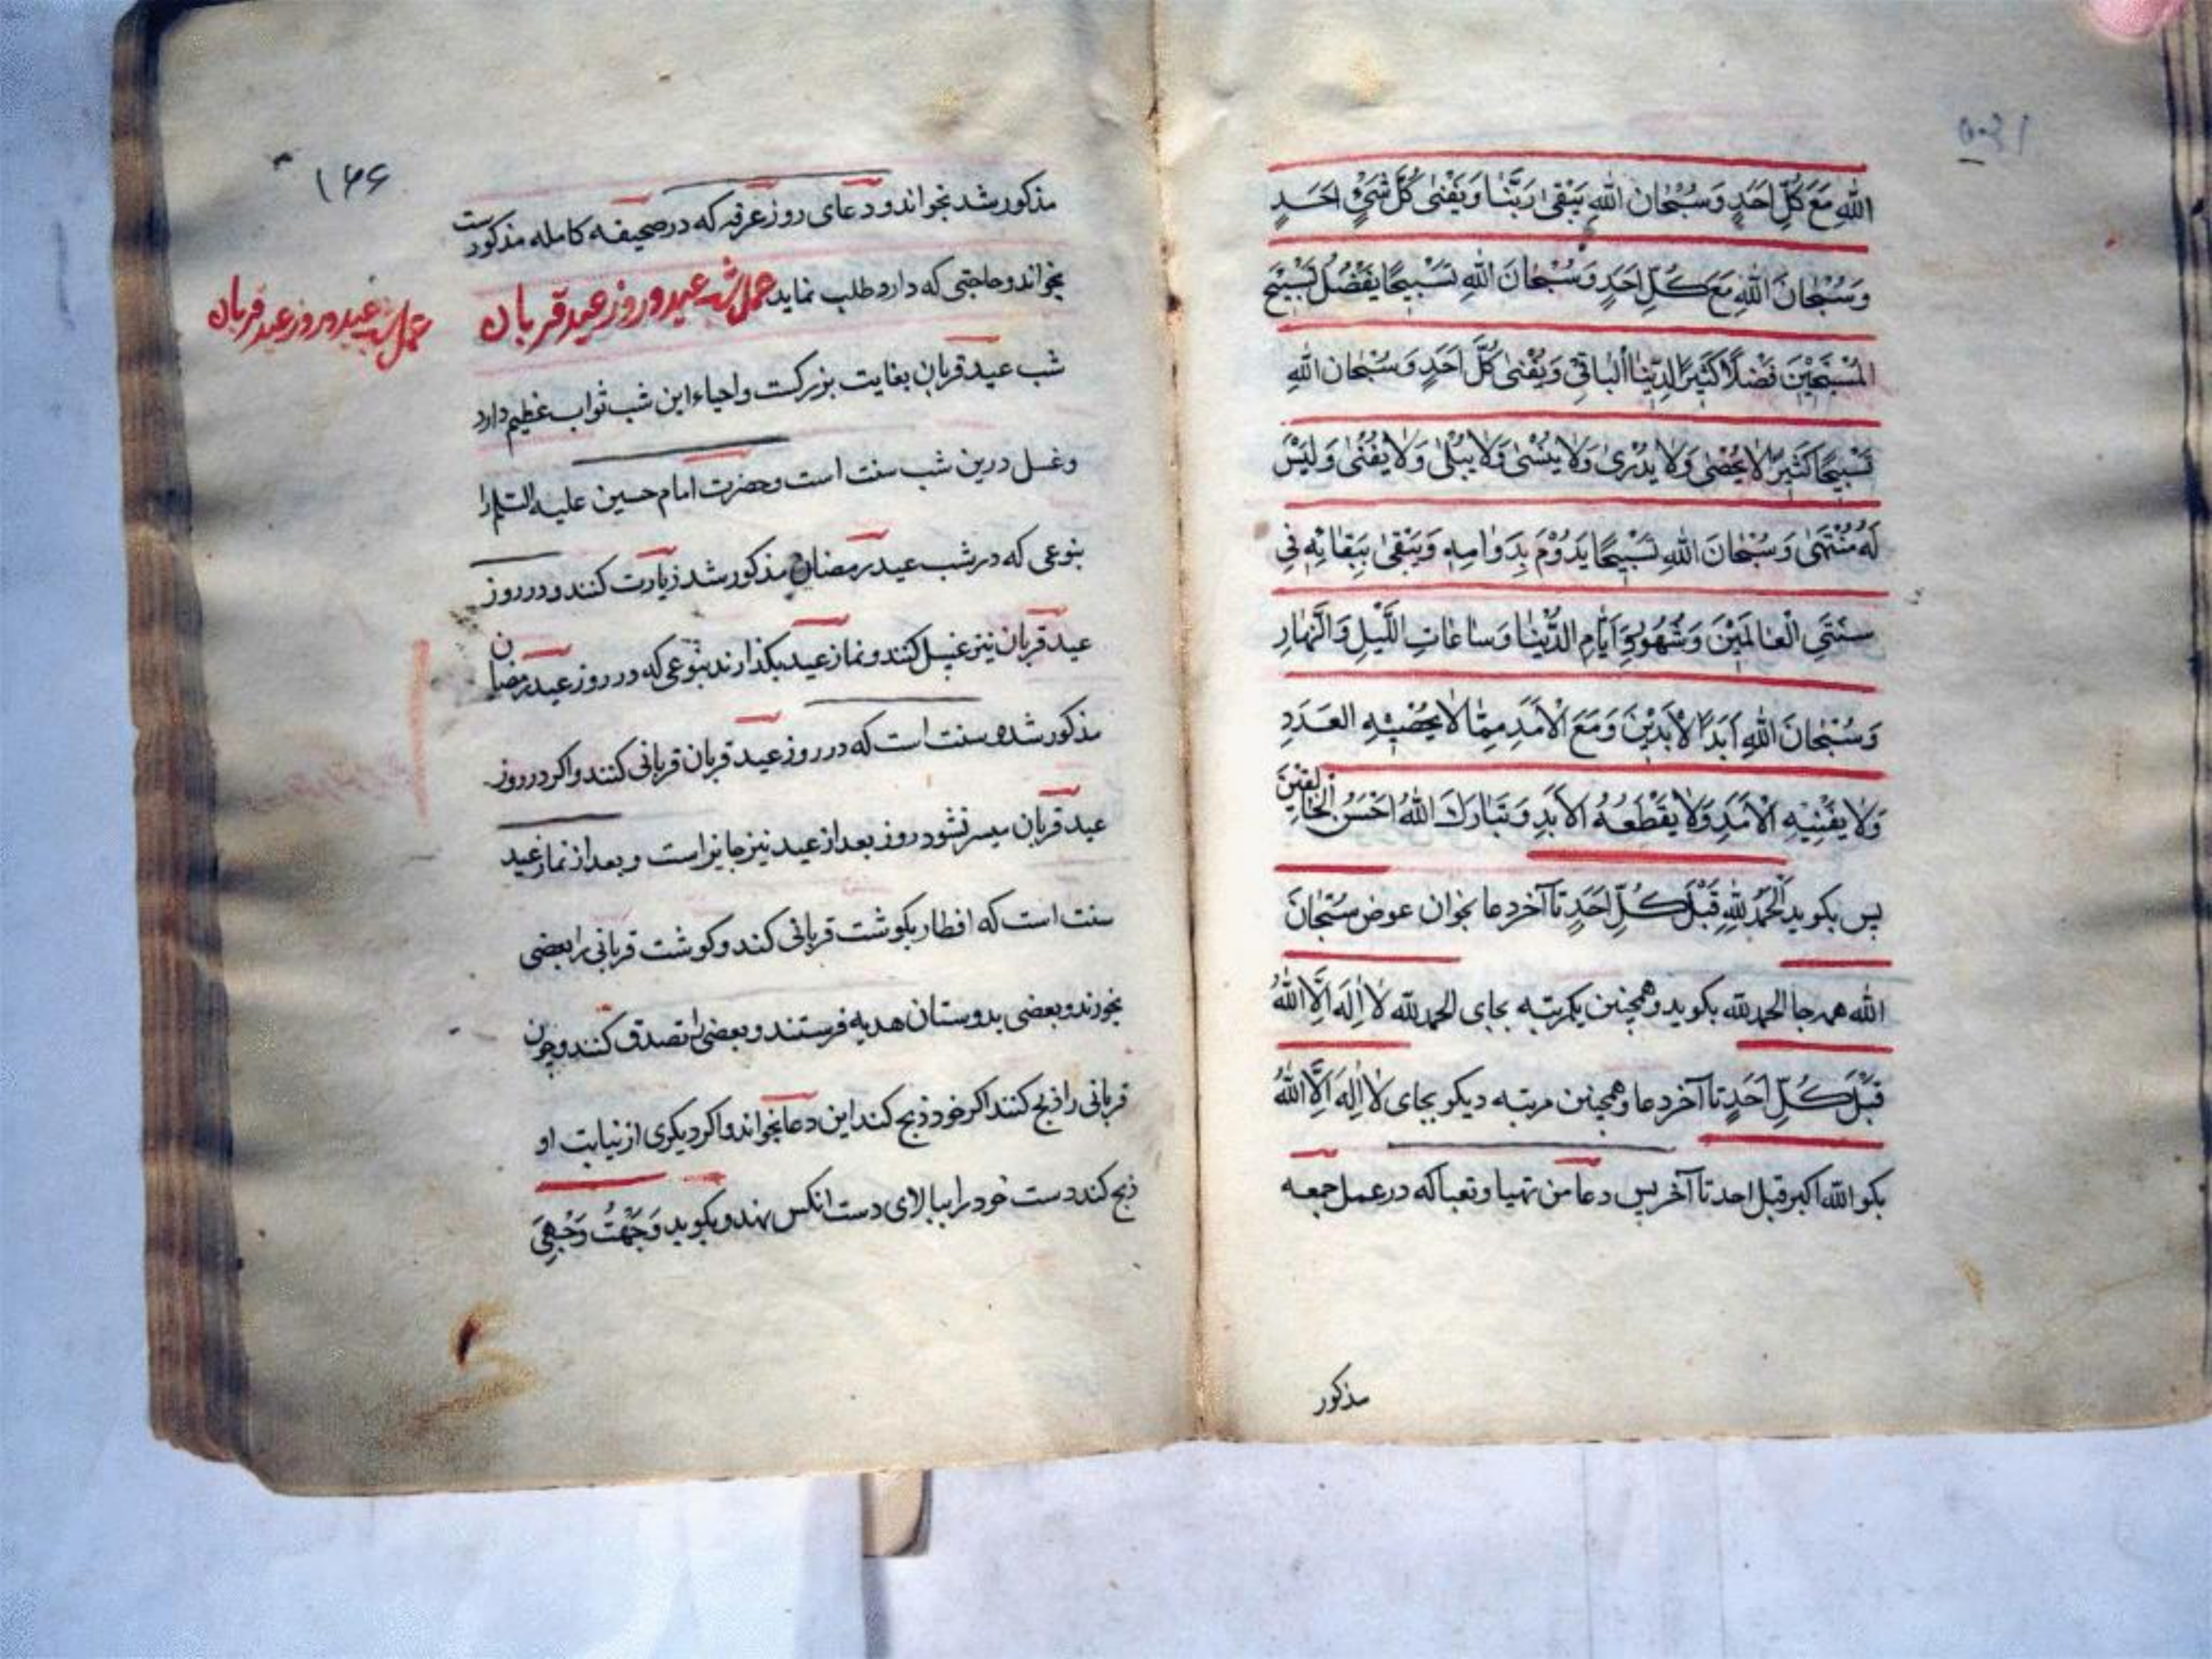 اللهِ مَعَ كُلِّ اَحَدٍ وَسُبْحَانَ اللهِ يَبْقى رَبَّنَا وَيَفْنى كُلَّ شَيْءٍ اَحَدٍ
وَسُبْحَانَ اللهِ مَعَ كُلِّ اَحَدٍ وَسُبْحَانَ اللهِ تَسْبِيحًا يَفْضُلُ تَسْبِيحَ
الْمُسَبِّحِيْنَ فَضْلًا كَثِيرًا لِرَبِّنَا الْبَاقِي وَيَفْنى كُلَّ اَحَدٍ وَسُبْحَانَ اللهِ
تَسْبِيحًا كَثِيرًا لَا يُحْصى وَلَا يُدْرى وَلَا يُنْسى وَلَا يَبْلى وَلَا يَفْنى وَلَيْسَ
لَهُ مُنْتَهى وَسُبْحَانَ اللهِ تَسْبِيحًا يَدُوْمُ بِدَوَامِهِ وَيَبْقى بِبَقَائِهِ فِي
سِنَتَيِ الْعَالَمِيْنَ وَشُهُورِ وَاَيَّامِ الدُّنْيَا وَسَاعَاتِ اللَّيْلِ وَالنَّهَارِ
وَسُبْحَانَ اللهِ اَبَدَ الْاَبَدِيْنَ وَمَعَ الْاَمَدِ مِمَّا لَا يُحْصِيْهِ الْعَدَدِ
وَلَا يُفْنِيْهِ الْاَمَدِ وَلَا يَقْطَعُهُ الْاَبَدِ وَتَبَارَكَ اللهُ اَحْسَنُ الْخَالِقِيْنَ
پس بكويد اَلْحَمْدُ لِلّهِ قَبْلَ كُلِّ اَحَدٍ تا آخر دعا بخوان عوض سُبْحَانَ
الله همه جا الحمد لله بكويد وهمچنين يكمرتبه بجاى الحمد لله لَا اِلهَ اِلَّا اللهُ
قَبْلَ كُلِّ اَحَدٍ تا آخر دعا وهمچنين مرتبه ديكر بجاى لَا اِلهَ اِلَّا اللهُ
بكو الله اكبر قبل احد تا آخر پس دعا من تهيا وتعبا كه در عمل جمعه
مذكور
۱۶۶
مذكور شد بخواند و دعاى روز عرفه كه در صحيفه كامله مذكورست
بخواند و حاجتى كه دارد طلب نمايد عمل شب عيد و روز عيد قربان
عمل شب عيد و روز عيد قربان
شب عيد قربان بغايت بزركست و احياء اين شب ثواب عظيم دارد
و غسل درين شب سنت است و حضرت امام حسين عليه السلم را
بنوعى كه در شب عيد رمضان مذكور شد زيارت كنند و در روز
عيد قربان نيز غسل كنند و نماز عيد بكذارند بنوعى كه در روز عيد رمضان
مذكور شده سنت است كه در روز عيد قربان قربانى كنند و اكر در روز
عيد قربان ميسر نشود روز بعد از عيد نيز جايز است و بعد از نماز عيد
سنت است كه افطار بكوشت قربانى كند و كوشت قربانى را بعضى
بخورند و بعضى بدوستان هديه فرستند و بعضى را تصدق كنند و چون
قربانى را ذبح كنند اكر خود ذبح كند اين دعا بخواند و اكر ديكرى از نيابت او
ذبح كند دست خود را ببالاى دست انكس نهد و بكويد وَجَّهْتُ وَجْهِيَ